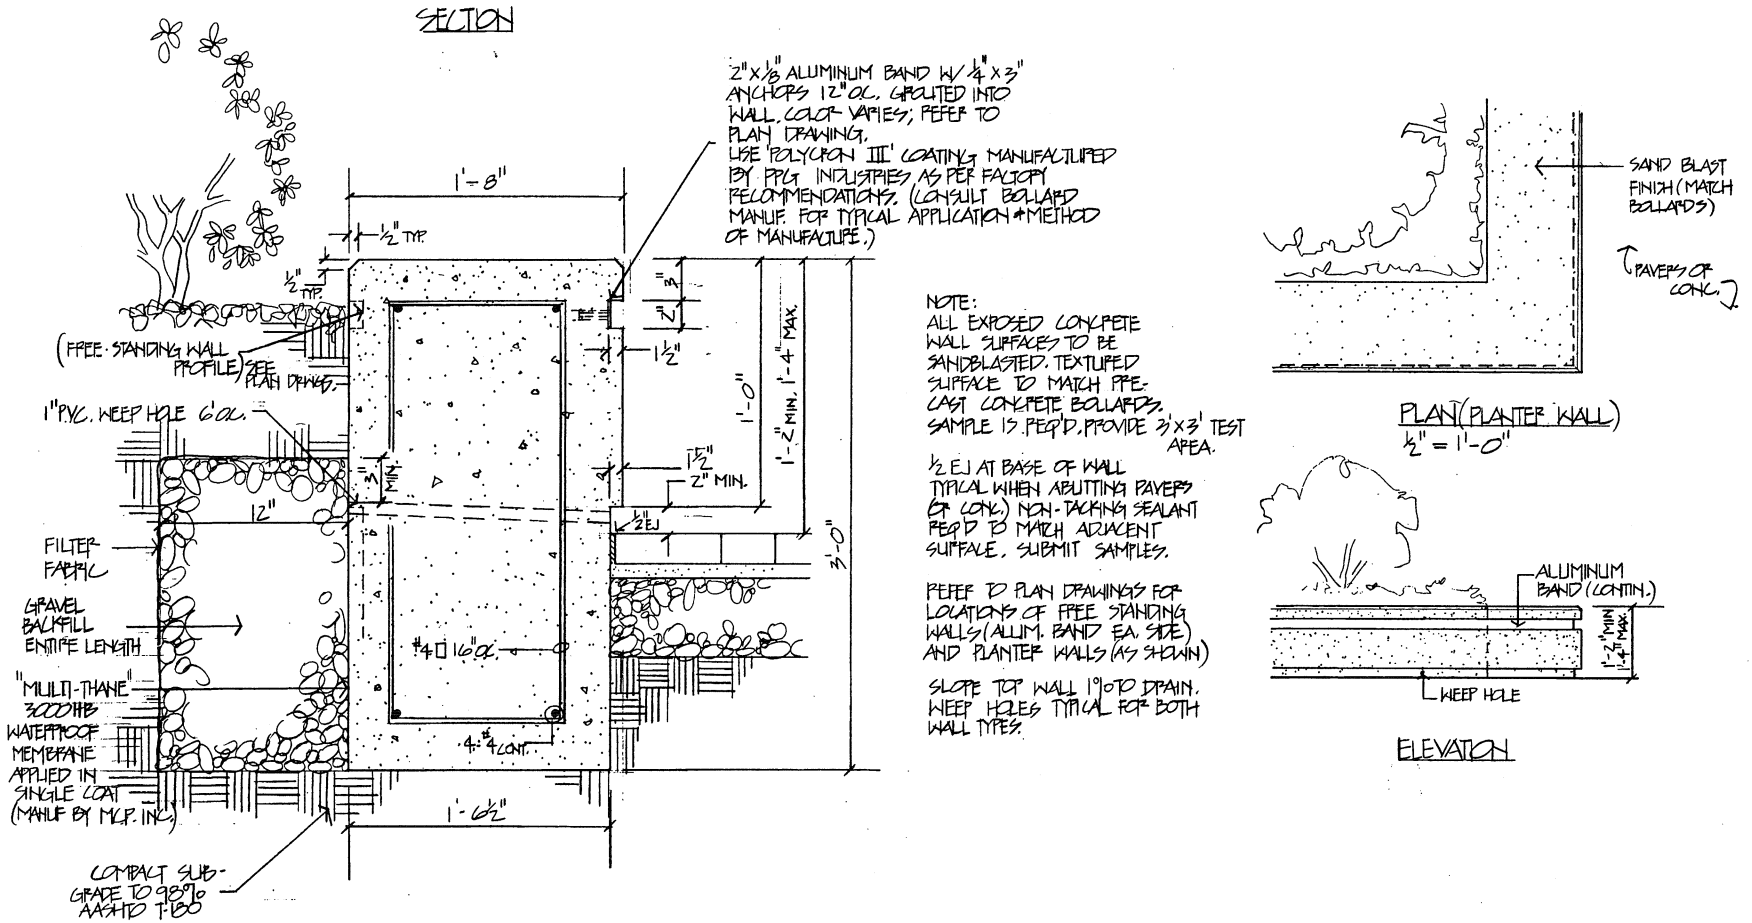 SECTION
2" X 1/8" ALUMINUM BAND W/ 1/4" X 3"
ANCHORS 12" O.C. GROUTED INTO
WALL. COLOR VARIES; REFER TO
PLAN DRAWING.
USE 'POLYCRON III' COATING MANUFACTURED
BY PPG INDUSTRIES AS PER FACTORY
RECOMMENDATIONS. (CONSULT BOLLARD
MANUF. FOR TYPICAL APPLICATION & METHOD
OF MANUFACTURE.)
1'-8"
1/2" TYP.
1/2"
TYP.
(FREE-STANDING WALL
PROFILE) SEE
PLAN DRWGS.
1" P.V.C. WEEP HOLE 6' O.C.
3"
MIN.
12"
FILTER
FABRIC
GRAVEL
BACKFILL
ENTIRE LENGTH
"MULTI-THANE"
3000 HB
WATERPROOF
MEMBRANE
APPLIED IN
SINGLE COAT
(MANUF BY M.C.P. INC.)
COMPACT SUB-
GRADE TO 98%
AASHTO T-180
#4 □ 16" O.C.
4-#4 CONT.
1'-6 1/2"
3"
2"
1 1/2"
1'-0"
1'-2" MIN. 1'-4" MAX.
3'-0"
1 1/2"
2" MIN.
1/2" EJ
NOTE:
ALL EXPOSED CONCRETE
WALL SURFACES TO BE
SANDBLASTED. TEXTURED
SURFACE TO MATCH PRE-
CAST CONCRETE BOLLARDS.
SAMPLE IS REQ'D. PROVIDE 3' X 3' TEST
AREA.
1/2 EJ AT BASE OF WALL
TYPICAL WHEN ABUTTING PAVERS
(OR CONC.) NON-TACKING SEALANT
REQ'D TO MATCH ADJACENT
SURFACE. SUBMIT SAMPLES.
REFER TO PLAN DRAWINGS FOR
LOCATIONS OF FREE STANDING
WALLS (ALUM. BAND EA. SIDE)
AND PLANTER WALLS (AS SHOWN)
SLOPE TOP WALL 1% TO DRAIN.
WEEP HOLES TYPICAL FOR BOTH
WALL TYPES.
SAND BLAST
FINISH (MATCH
BOLLARDS)
PAVERS OR
CONC.
PLAN (PLANTER WALL)
1/2" = 1'-0"
ALUMINUM
BAND (CONTIN.)
1'-2" MIN
1'-4" MAX.
WEEP HOLE
ELEVATION